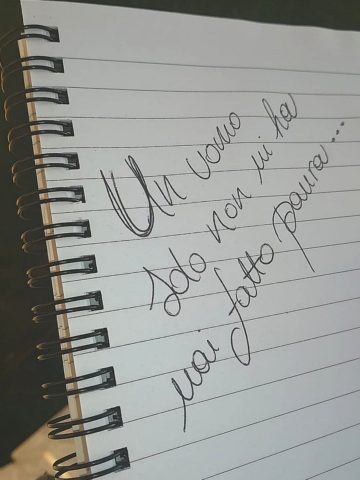 Un uomo
solo non mi ha
mai fatto paura...